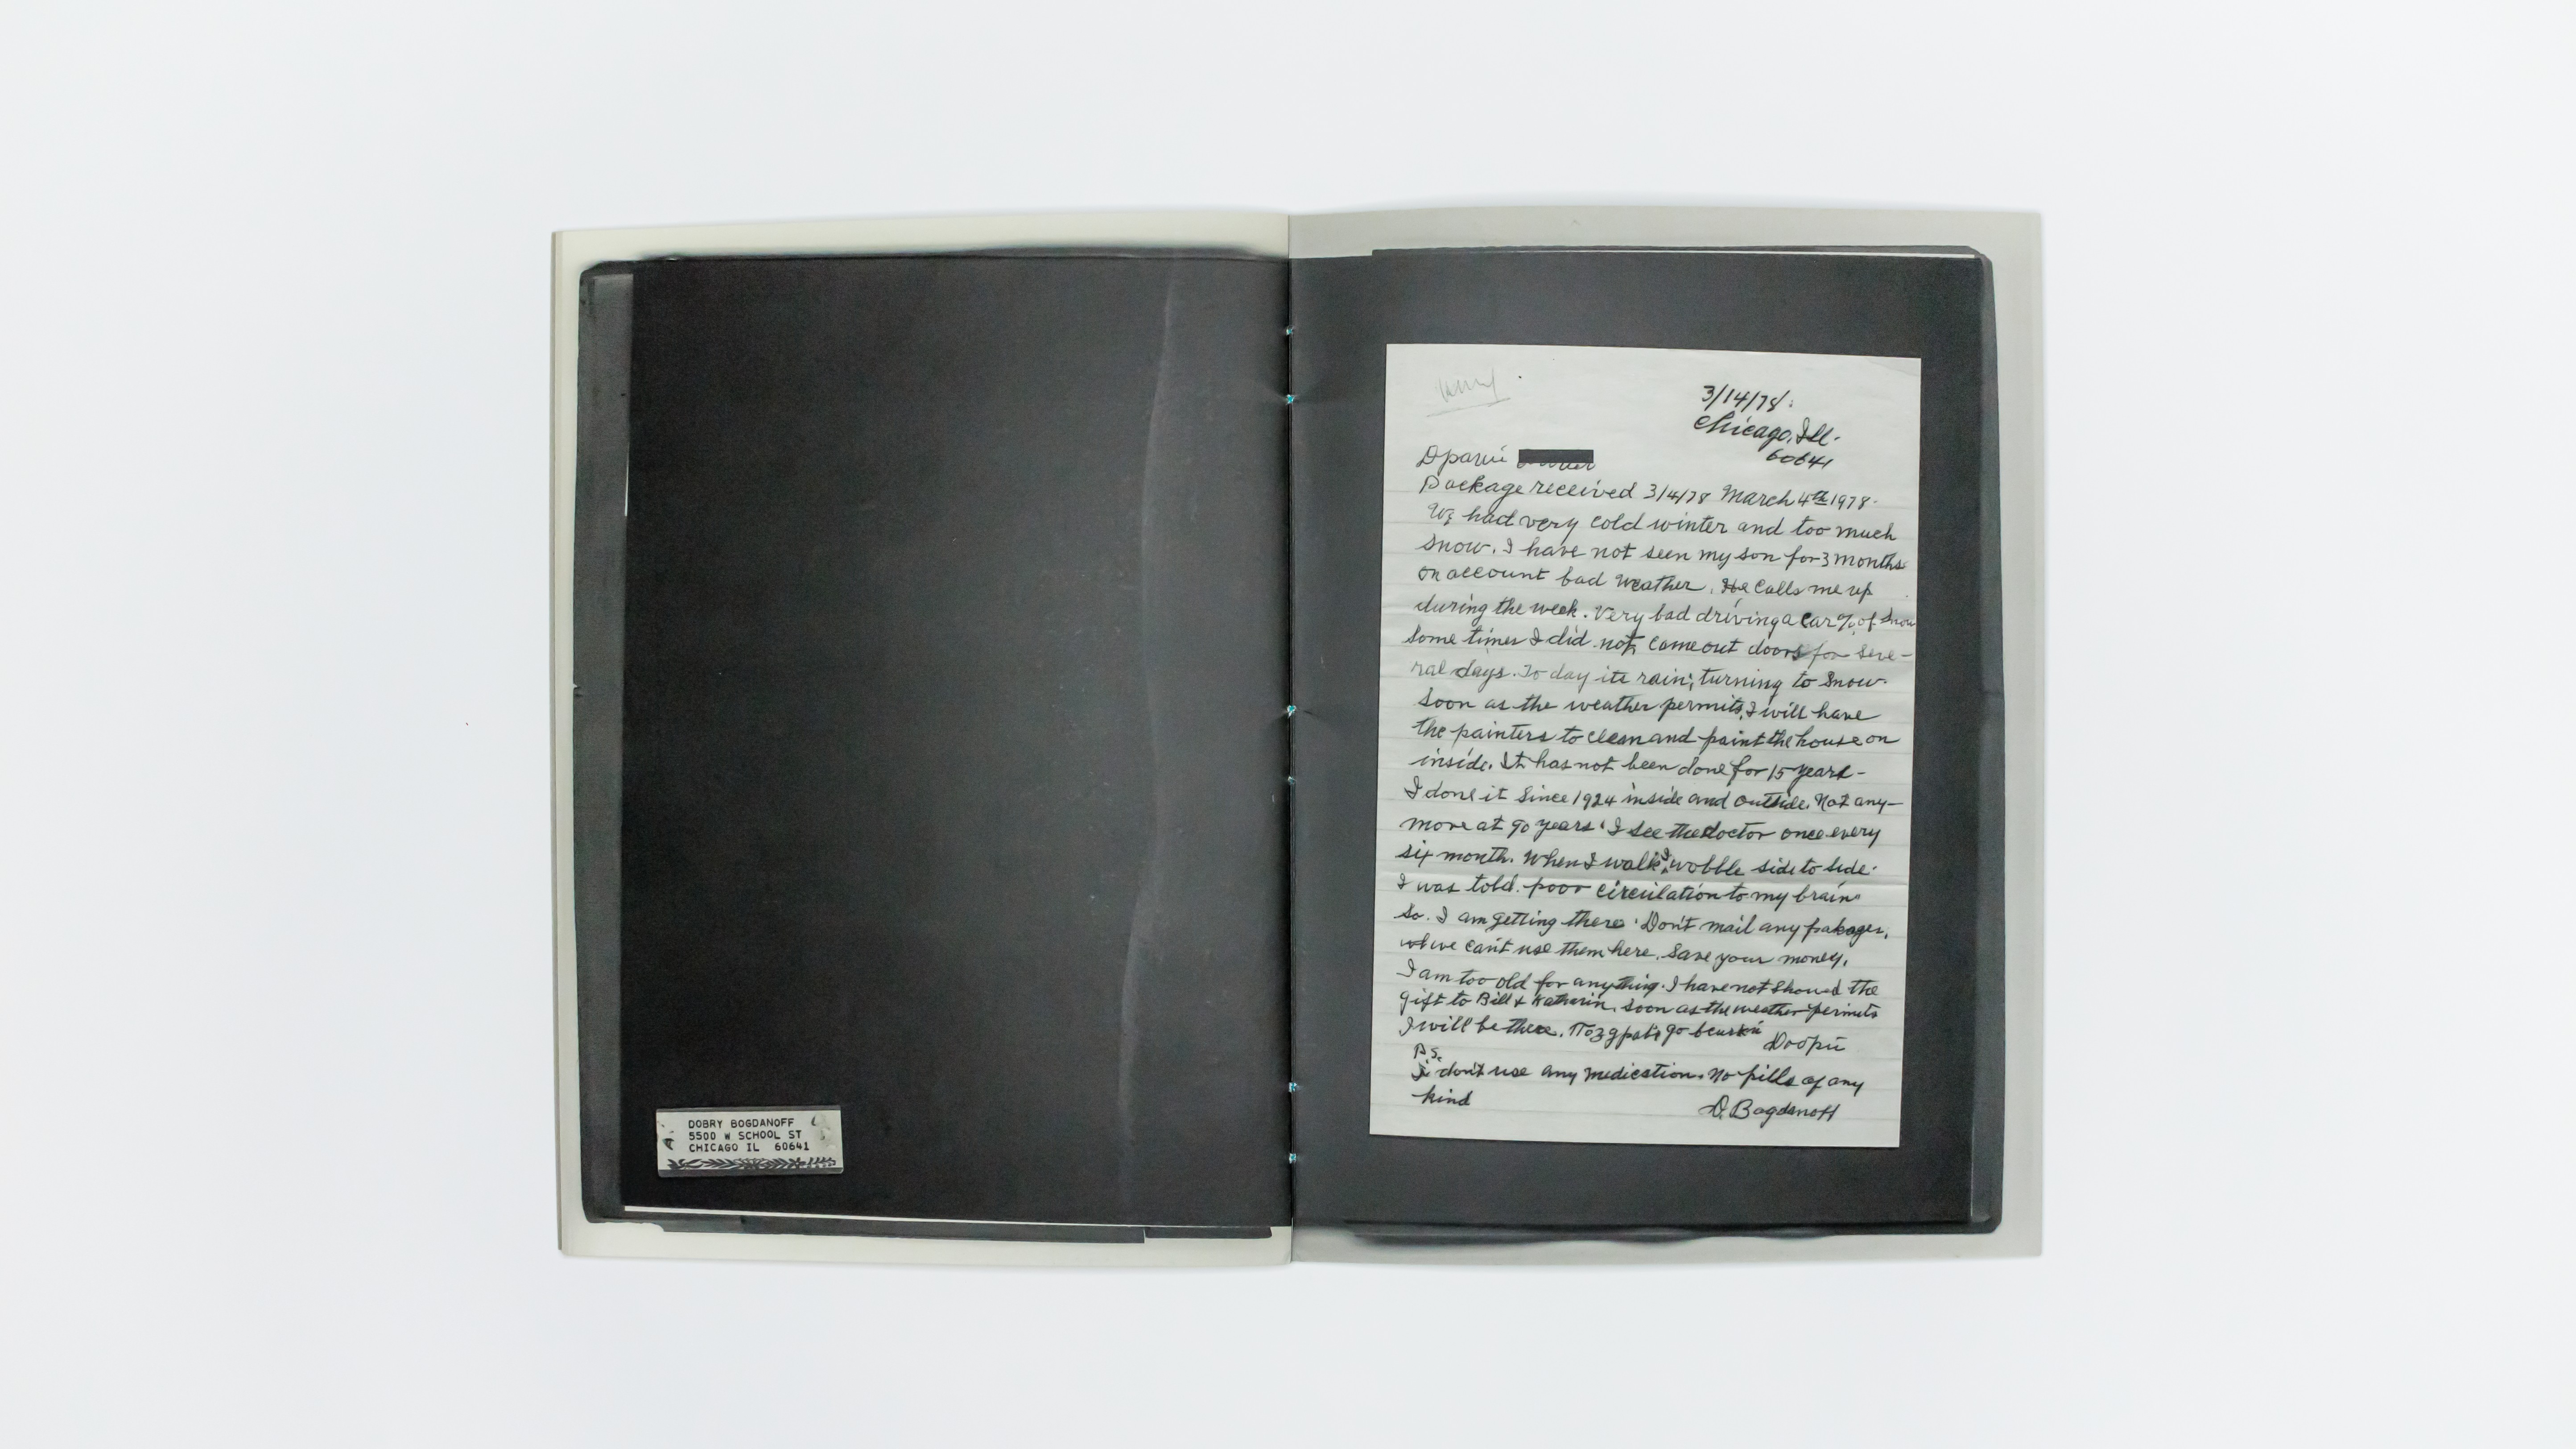 DOBRY BOGDANOFF
5500 W SCHOOL ST
CHICAGO IL 60641
3/14/78.
Chicago, Ill.
60641
Драги
Package received 3/4/78 March 4th 1978.
We had very cold winter and too much
snow. I have not seen my son for 3 months
on account bad weather. He calls me up
during the week. Very bad driving a car % of snow
some times I did not come out doors for seve-
ral days. To day its rain; turning to snow.
Soon as the weather permits, I will have
the painters to clean and paint the house on
inside. It has not been done for 15 years-
I done it since 1924 inside and outside. Not any-
more at 90 years. I see the doctor once every
six month. When I walk I wobble side to side.
I was told. poor circulation to my brain.
So. I am getting there. Don't mail any pakages,
we can't use them here. Save your money.
I am too old for anything. I have not showed the
gift to Bill & Katherin, soon as the weather permits
I will be there. Поздрави до всички
Добри
P.S.
I don't use any medication. No pills of any
kind
D. Bogdanoff